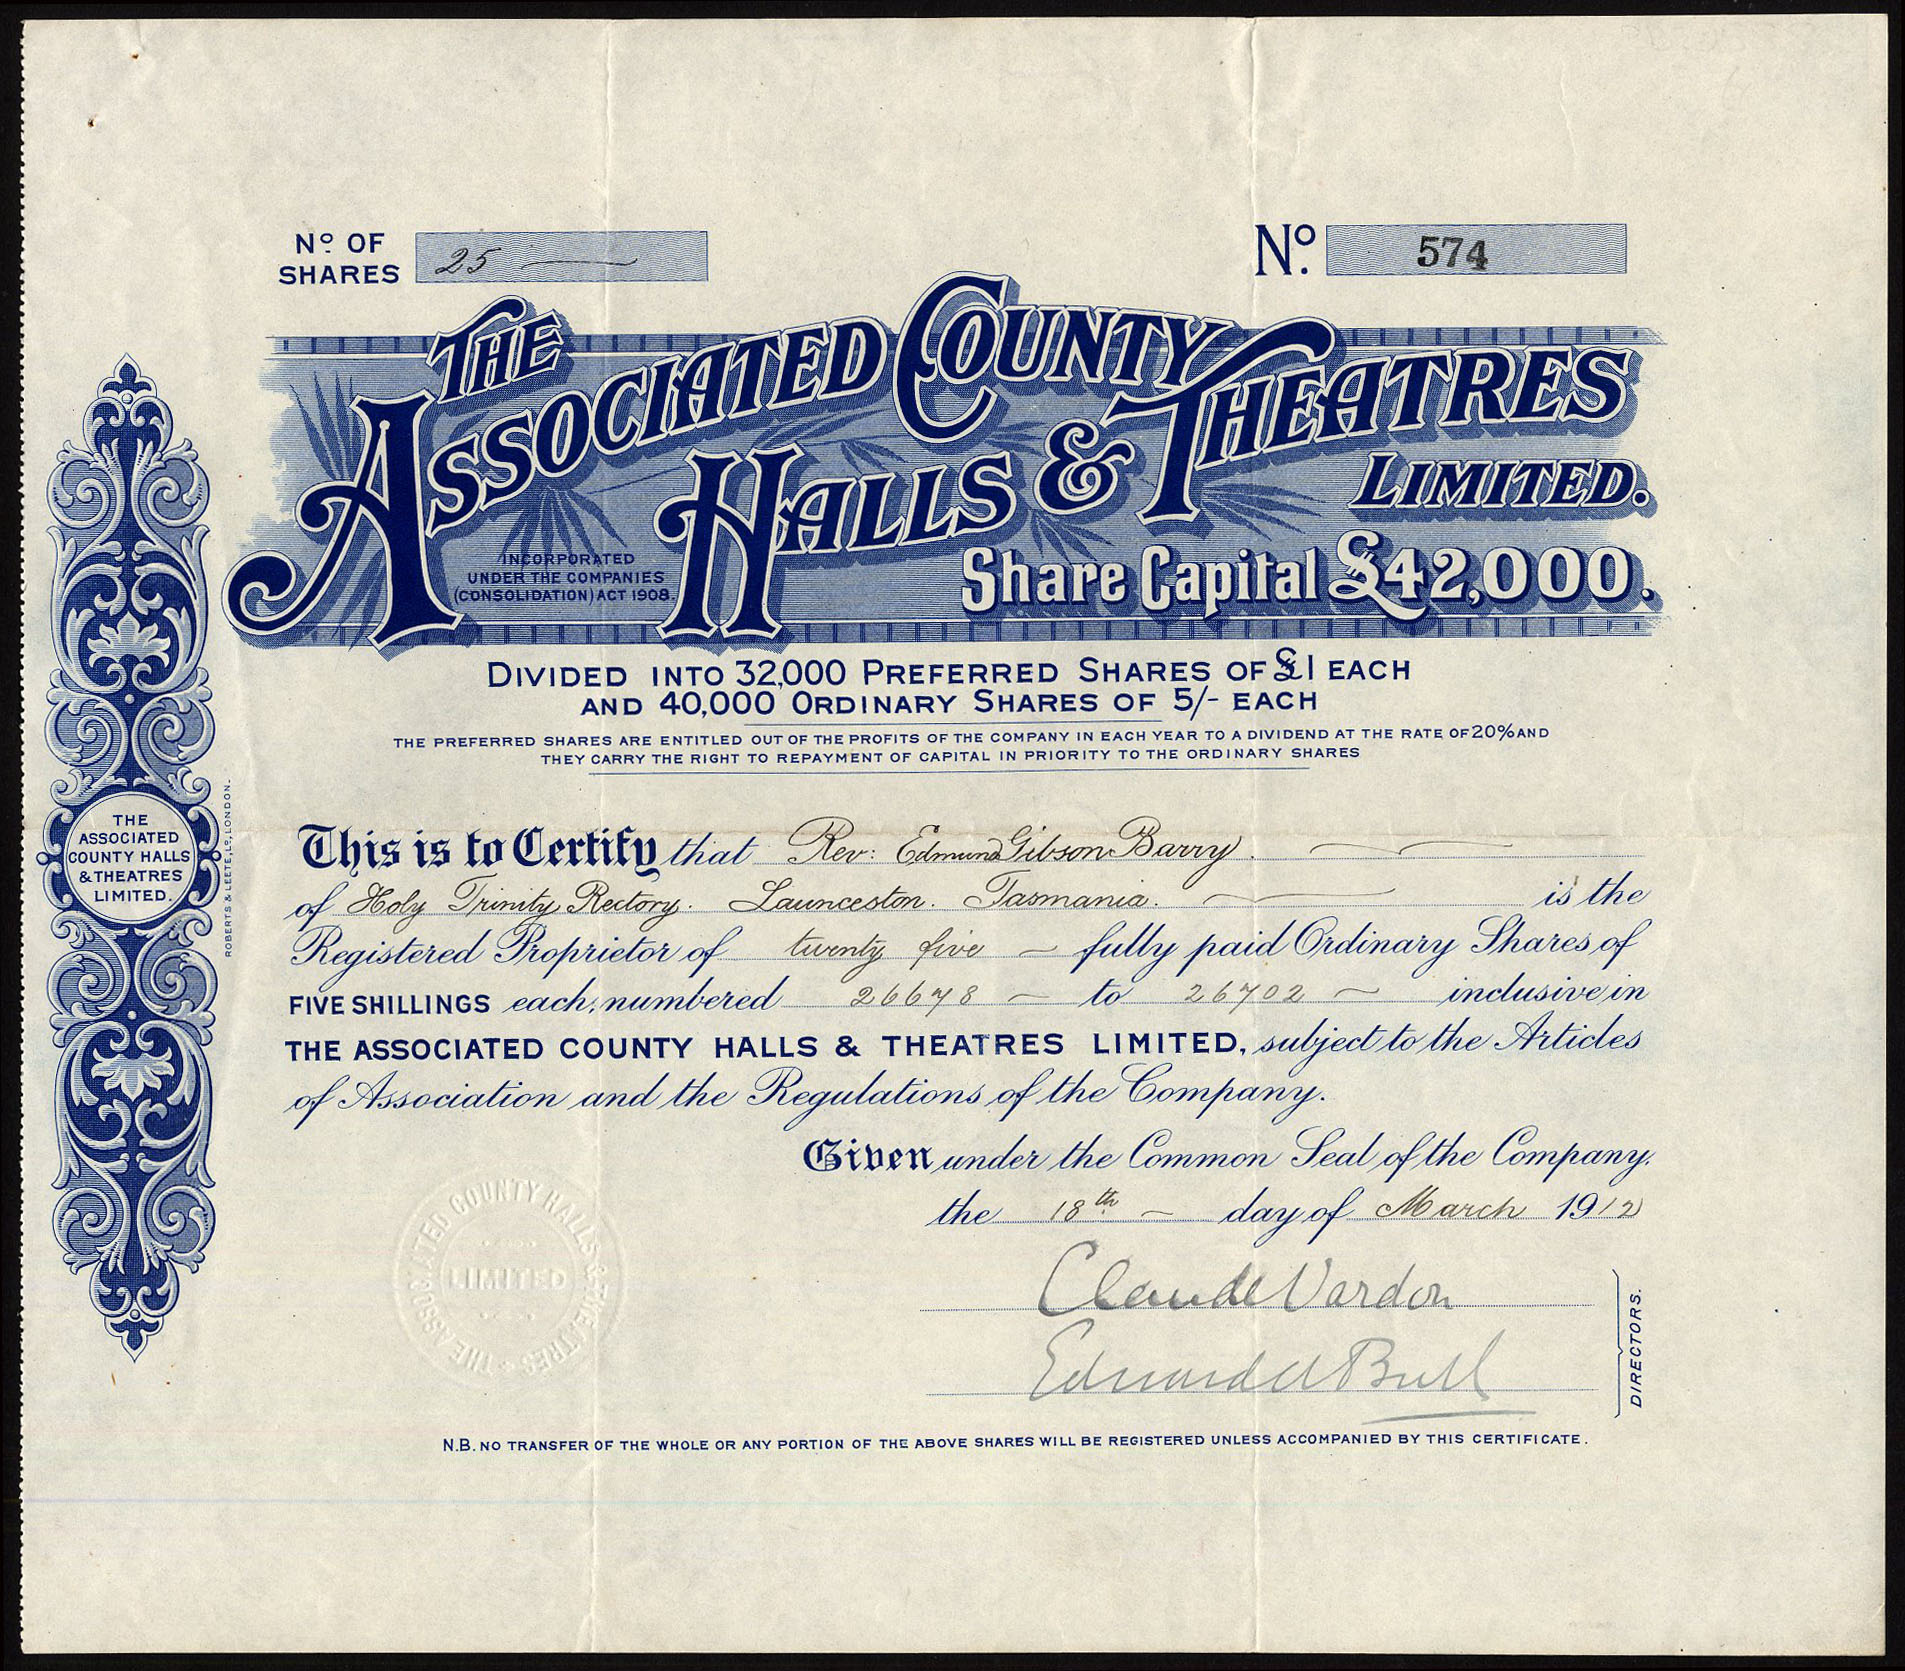 Nº OF
SHARES 25
Nº. 574
THE
ASSOCIATED COUNTY
HALLS & THEATRES
LIMITED.
INCORPORATED
UNDER THE COMPANIES
(CONSOLIDATION) ACT 1908.
Share Capital £42,000.
DIVIDED INTO 32,000 PREFERRED SHARES OF £1 EACH
AND 40,000 ORDINARY SHARES OF 5/- EACH
THE PREFERRED SHARES ARE ENTITLED OUT OF THE PROFITS OF THE COMPANY IN EACH YEAR TO A DIVIDEND AT THE RATE OF 20% AND
THEY CARRY THE RIGHT TO REPAYMENT OF CAPITAL IN PRIORITY TO THE ORDINARY SHARES
THE
ASSOCIATED
COUNTY HALLS
& THEATRES
LIMITED.
ROBERTS & LEETE, LD, LONDON.
This is to Certify that Rev: Edmund Gibson Barry.
of Holy Trinity Rectory. Launceston. Tasmania. is the
Registered Proprietor of twenty five fully paid Ordinary Shares of
FIVE SHILLINGS each, numbered 26678 to 26702 inclusive in
THE ASSOCIATED COUNTY HALLS & THEATRES LIMITED, subject to the Articles
of Association and the Regulations of the Company.
Given under the Common Seal of the Company,
the 18th day of March 1912
THE ASSOCIATED COUNTY HALLS & THEATRES
LIMITED
Claude Vardon
Edward A Bull
DIRECTORS.
N.B. NO TRANSFER OF THE WHOLE OR ANY PORTION OF THE ABOVE SHARES WILL BE REGISTERED UNLESS ACCOMPANIED BY THIS CERTIFICATE.